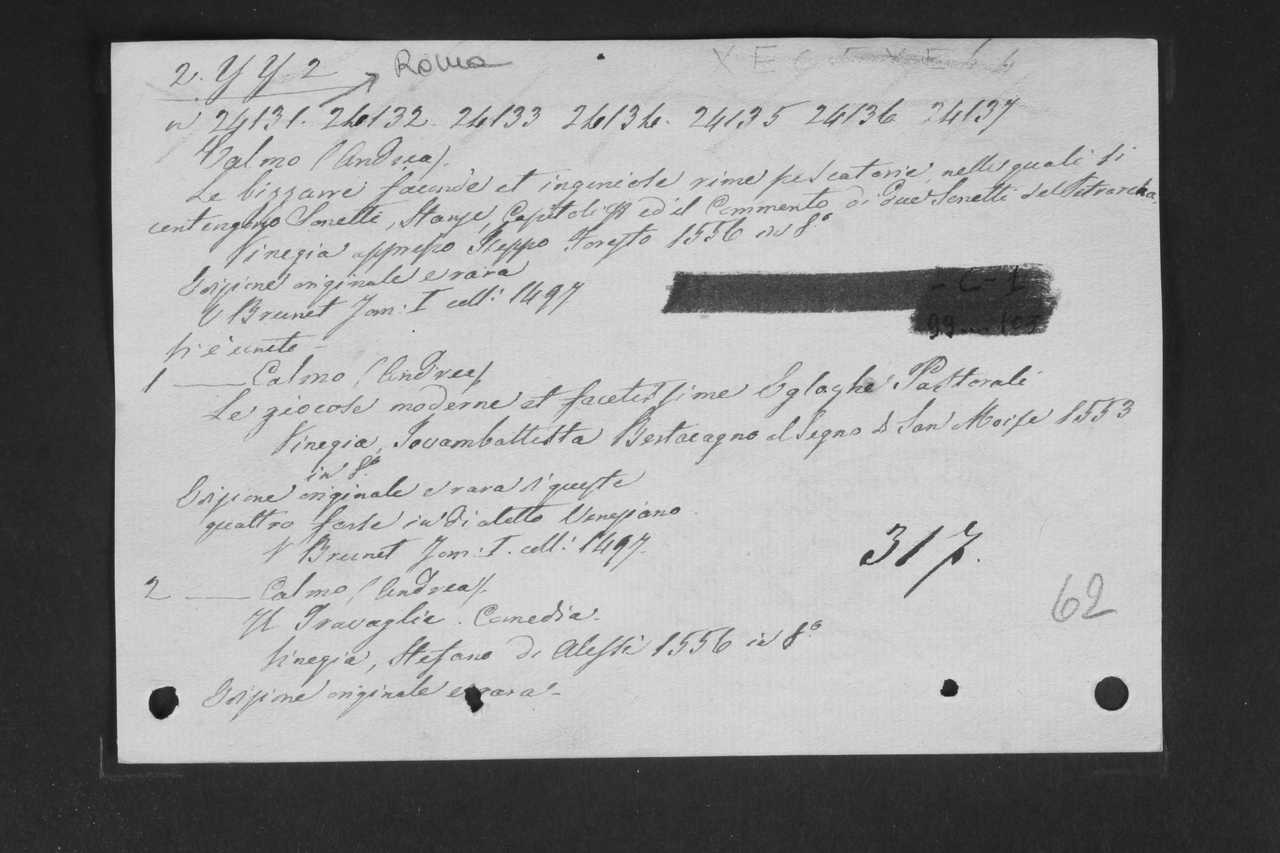 2. Y Y 2 Roma
n 24131. 24132. 24133 24134. 24135 24136 24137
Calmo (Andrea).
Le bizzarre faconde et ingeniose rime pescatorie, nelle quali si
contengono Sonetti, Stanze, Capitoli ed il Commento di due Sonetti del Petrarcha.
Vinegia appresso Iseppo Foresto 1556 in 8º
Edizione originale e rara
V Brunet Tom: I coll: 1497
Si è unito -
1 — Calmo (Andrea).
Le giocose moderne et facetissime Egloghe Pastorali
Vinegia, Iovambattista Bertacagno al Segno di San Moise 1553
in 8º
Edizione originale e rara di queste
quattro farse in dialetto Veneziano.
V Brunet Tom: I. coll: 1497.
317.
2 — Calmo (Andrea).
Il Travaglia. Comedia.
62
Vinegia, Stefano di Alessi 1556 in 8º
Edizione originale e rara -